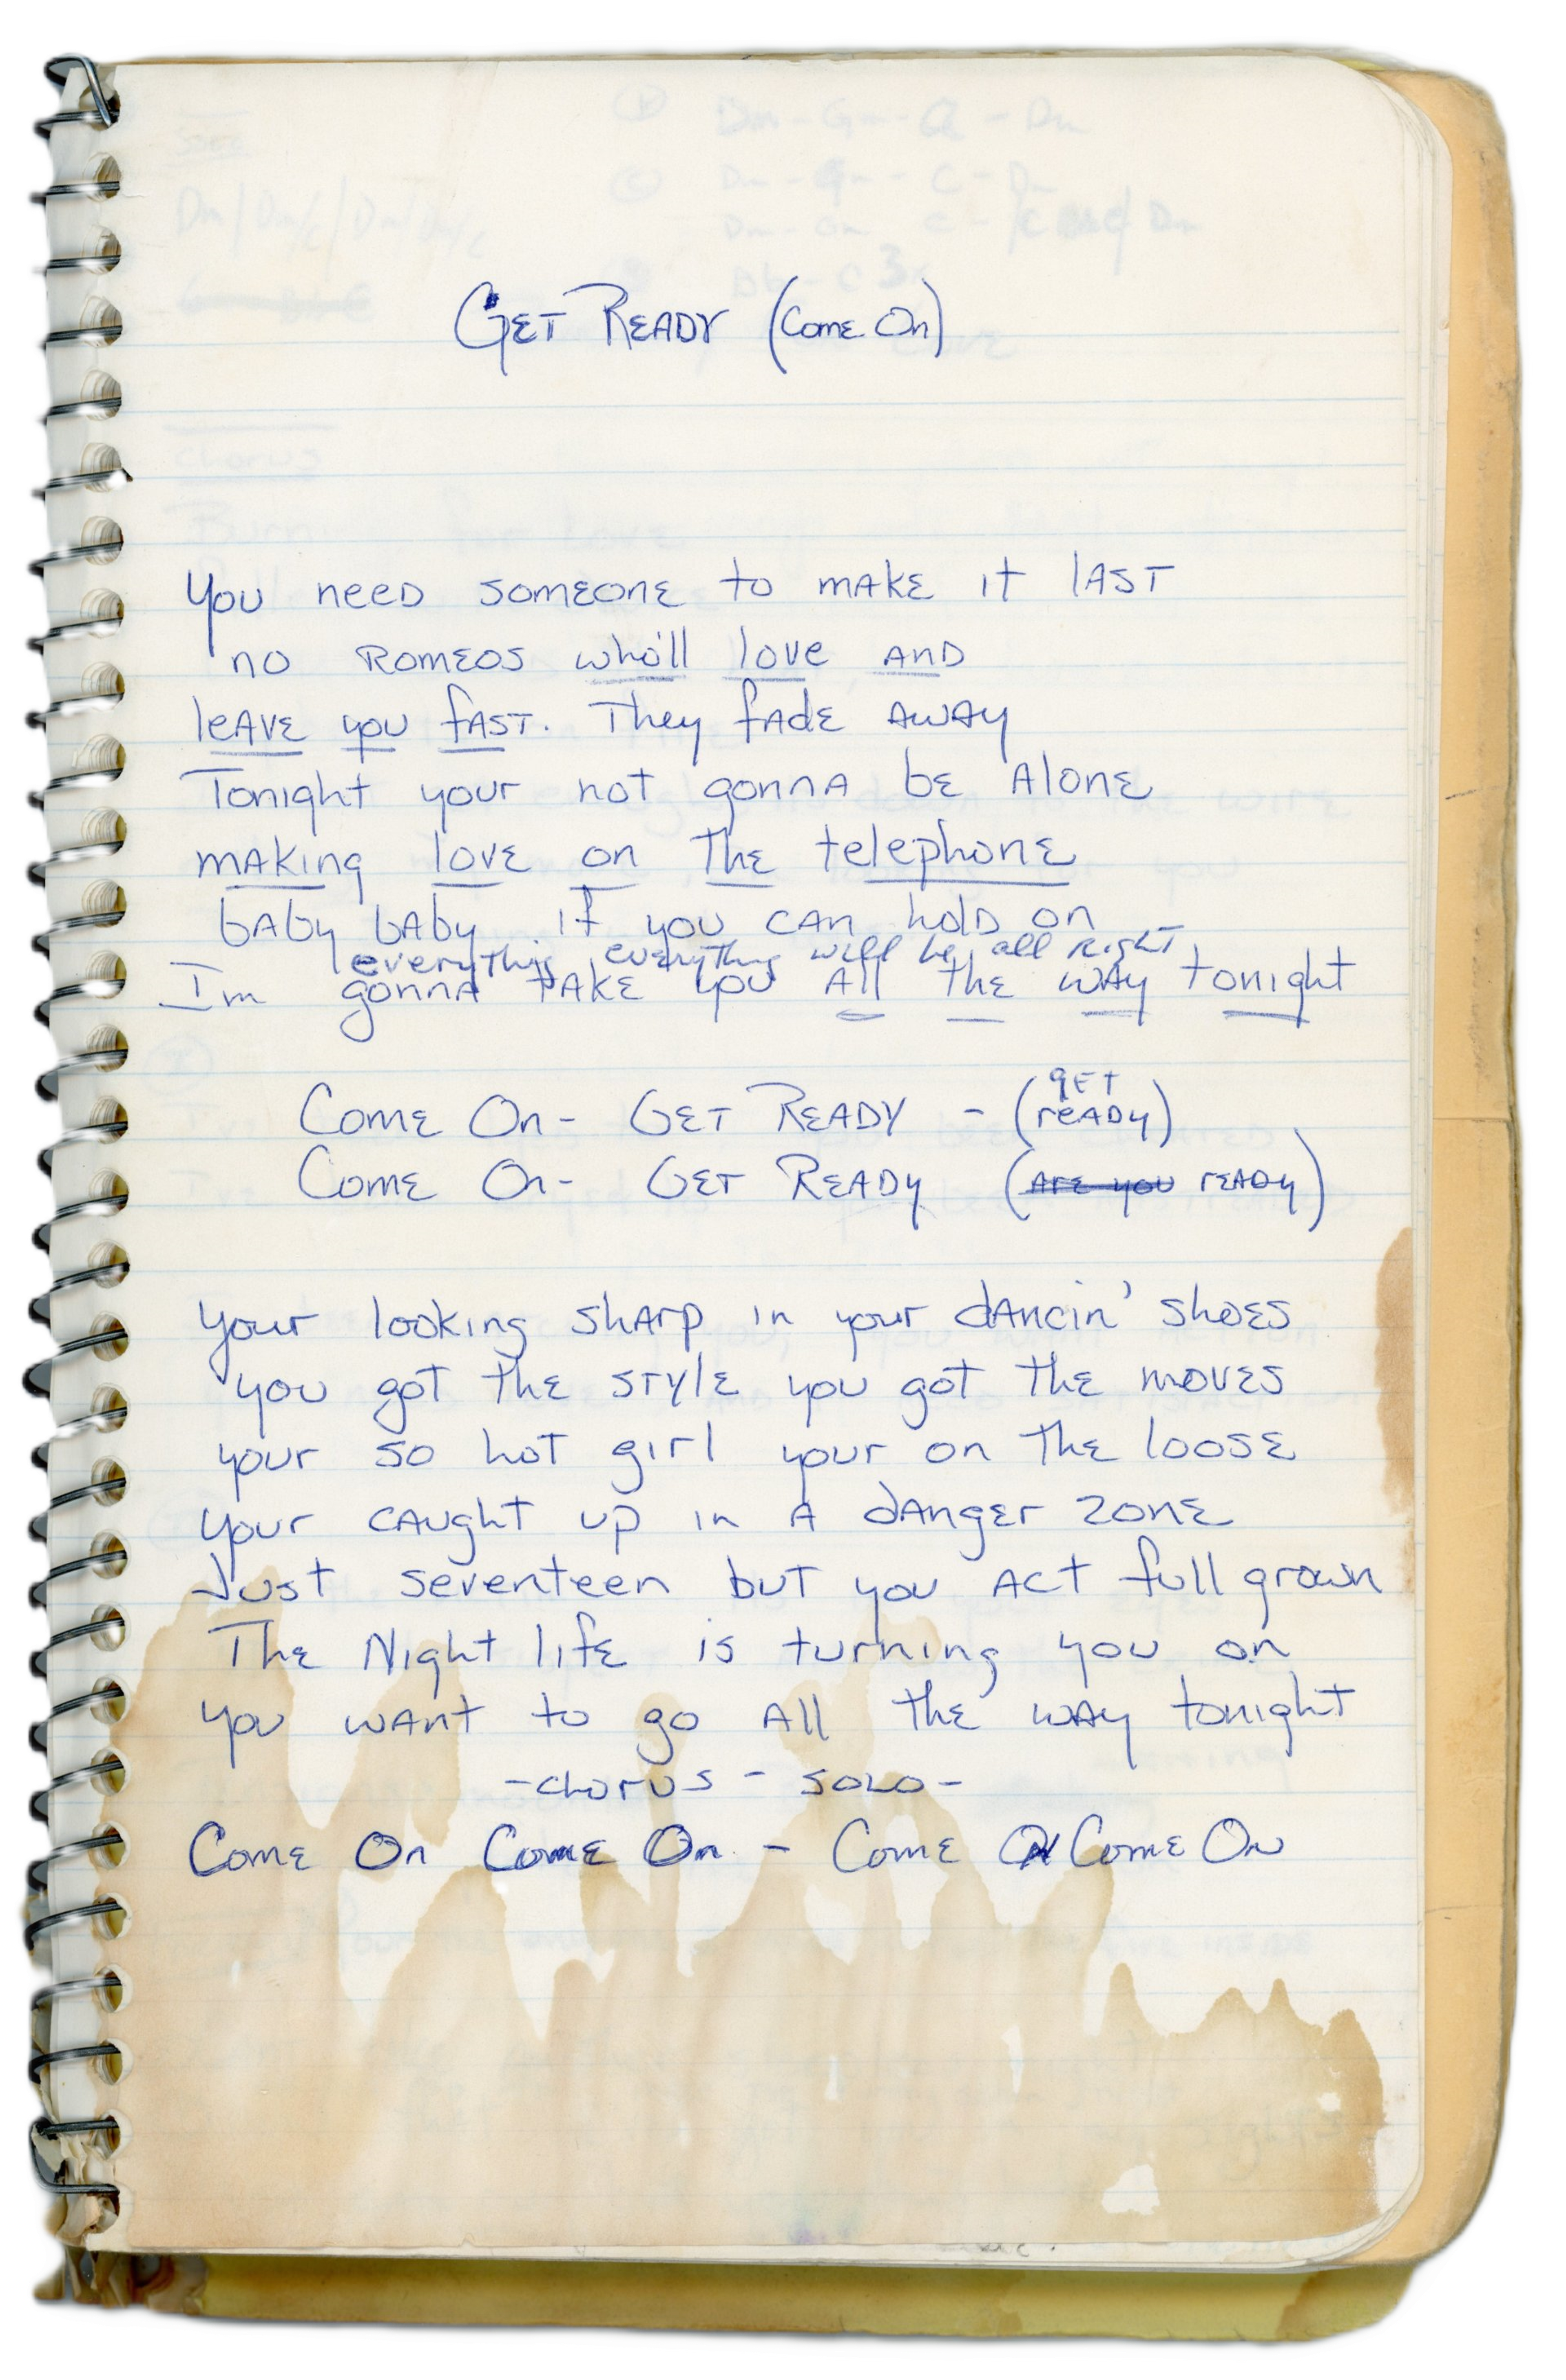 GET READY (Come On)
You need someone to make it last
no Romeos who'll love and
leave you fast. They fade away
Tonight your not gonna be alone
making love on the telephone
baby baby if you can hold on
everything everything will be all right
Im gonna take you all the way tonight
Come On- GET READY - (get ready)
Come On- GET READY (are you ready)
your looking sharp in your dancin' shoes
you got the style you got the moves
your so hot girl your on the loose
your caught up in a danger zone
Just seventeen but you act full grown
The Night life is turning you on
you want to go all the way tonight
-chorus - solo-
Come On Come On - Come On Come On